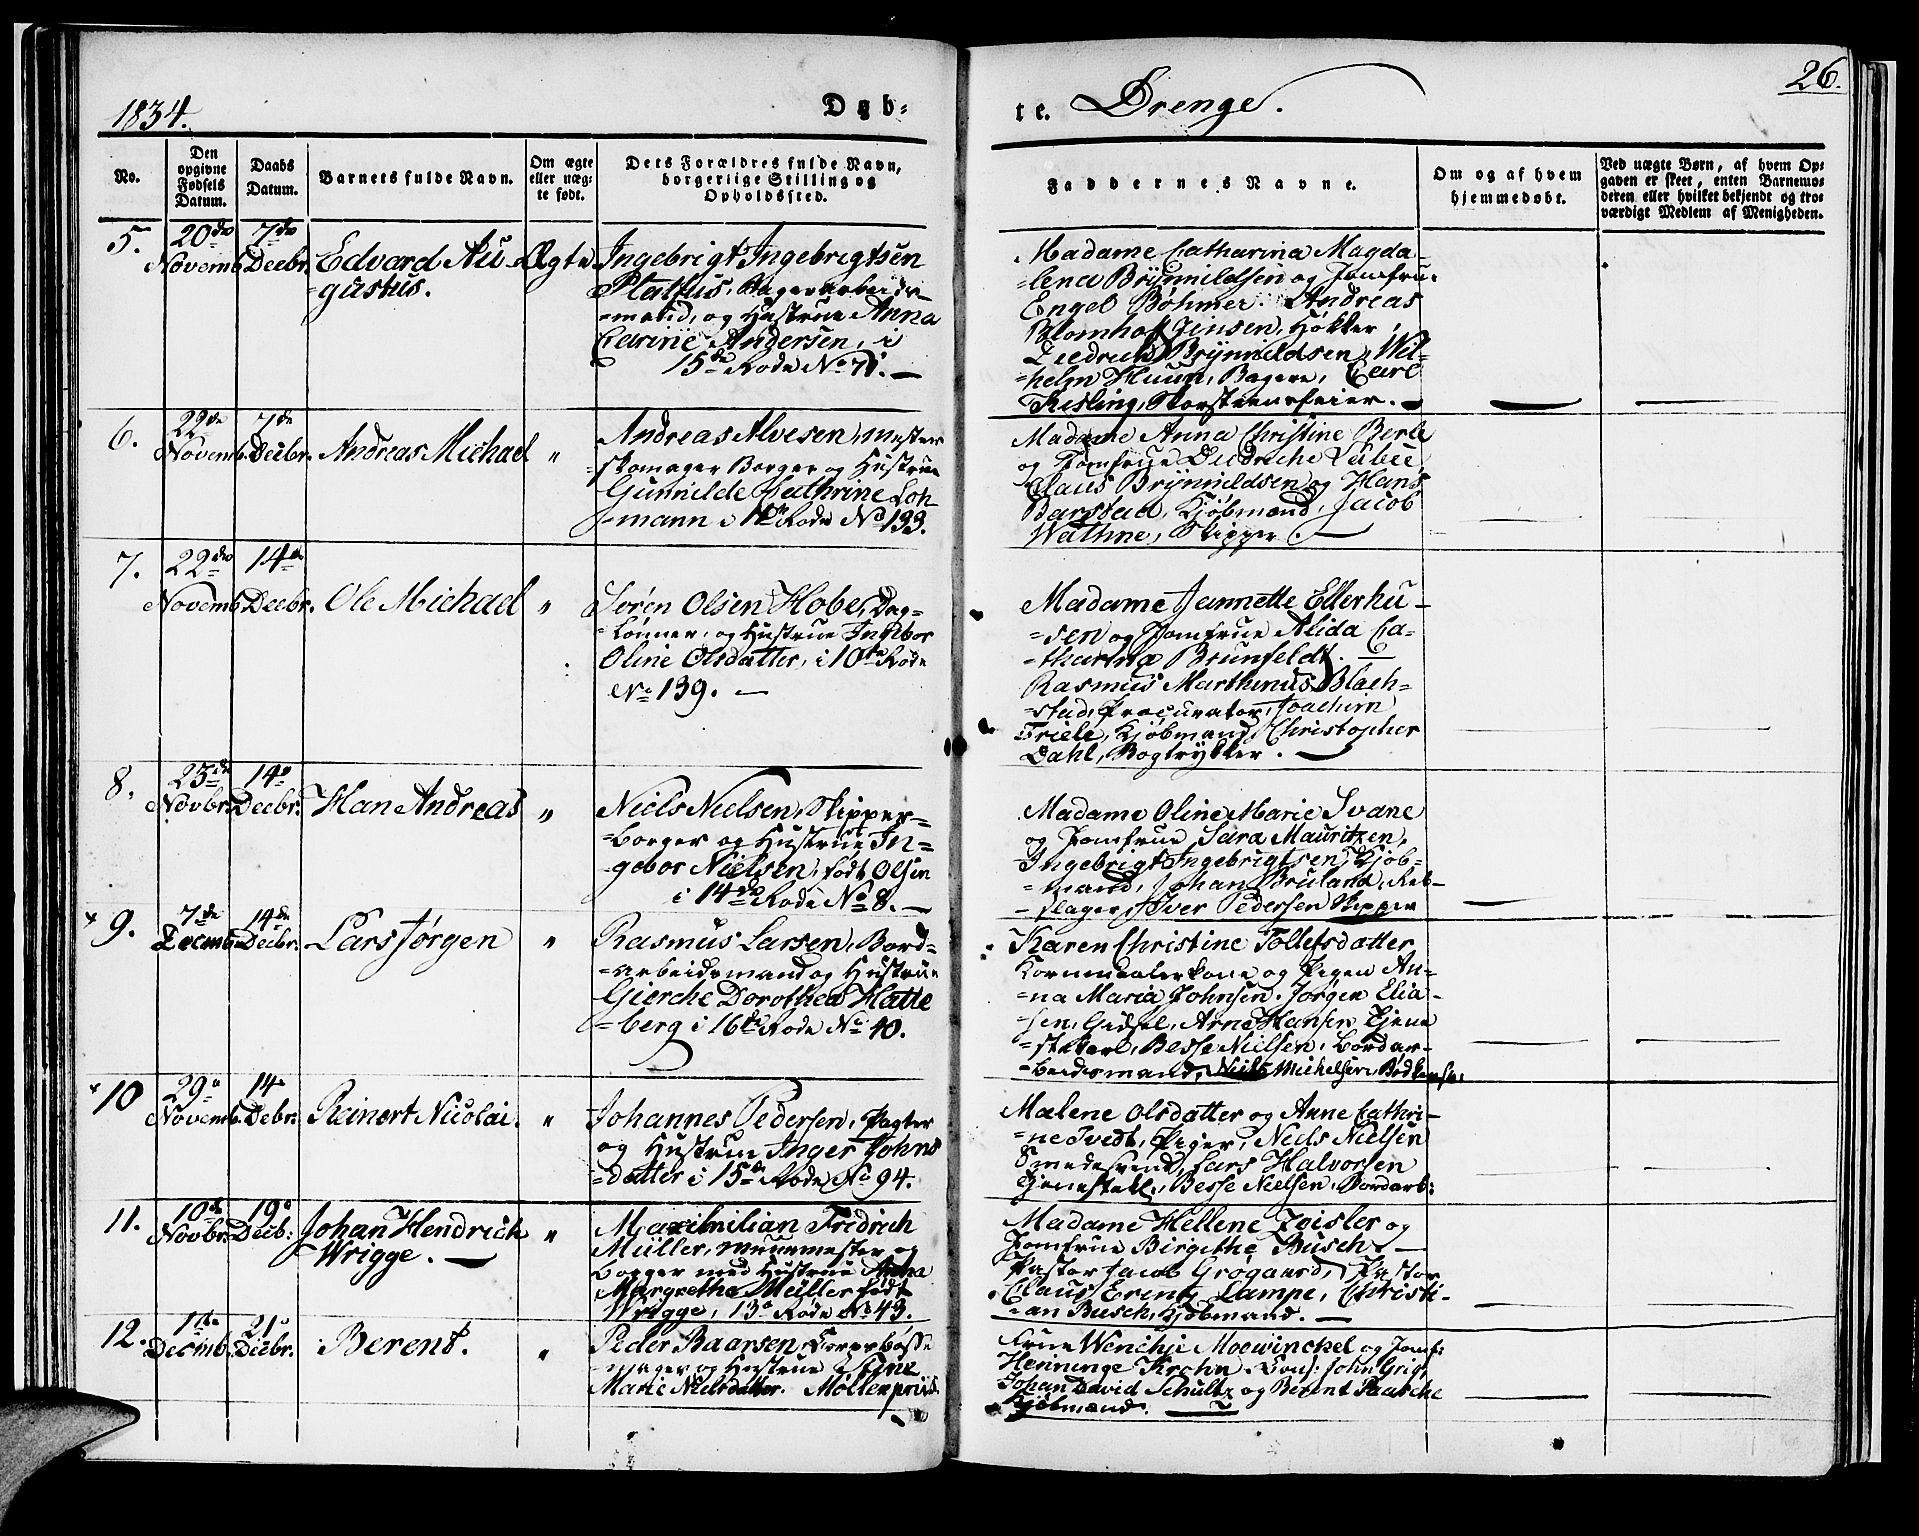 1834.
Døb-
te. Drenge.
26.
No.
Den opgivne Fødsels Datum.
Daabs Datum.
Barnets fulde Navn.
Om ægte eller uægte født.
Dets Forældres fulde Navn, borgerlige Stilling og Opholdssted.
Faddernes Navne.
Om og af hvem hjemmedøbt.
Ved uægte Børn, af hvem Opgaven er skeet, enten Barnemoderen eller hvilket bekjendt og troværdigt Medlem af Menigheden.
5.
20de Novemb.
7de Decbr.
Edvard Au-
gustus.
Ægte
Ingebrigt Ingebrigtsen
og Hustrue Anna
Catrine Andersen, i
15de Rode No 71.
Madame Catharina Magda-
lena Brynnildsen og Jomfru
Engel Bøhmer. Andreas
Blomhoff Jensen, Høkker,
Diedrich Brynnildsen, Wil-
helm Huun, Bager, Carl
Kisling, Skorsteensfeier.
6.
22de Novemb.
7de Decbr.
Andreas Michael
"
Andreas Alvesen, Mester
skomager Borger og Hustrue
Gunnilde Cathrine Loh-
mann i Rode No 133.
Madame Anna Christine Berle
og Jomfrue Diedriche Lübce,
Claus Brynnildsen og Hans
Barstad, Kjøbmænd, Jacob
Wathne, Skipper.
7.
22de Novemb.
14de Decbr.
Ole Michael
"
Søren Olsen Hobe, Dag-
lønner, og Hustrue Ingebor
Oline Olsdatter, i 10de Rode
No 139.
Madame Jannette Ellerhu-
sen og Jomfrue Alida Ca-
tharina Brunfeldt.
Rasmus Marthinus Blach-
stad, Procurator, Joachim
Friele, Kjøbmand, Christopher
Dahl, Bogtrykker.
8.
23de Novbr.
14de Decbr.
Han Andreas
"
Niels Nielsen, Skipper-
borger og Hustrue In-
gebor Nielsen, født Olsen
i 14de Rode No 8.
Madame Oline Marie Svane
og Jomfrue Sara Mauritzen,
Ingebrigt Ingebrigtsen, Kjøb-
mand, Johan Bruland, Reb-
slager, Iver Pedersen Skipper
9.
7de Decemb.
14de Decbr.
Lars Jørgen
"
Rasmus Larsen, Bord-
arbeidsmand og Hustrue
Gierche Dorothea Hatle
berg i 16de Rode No 40.
Karen Christine Tollefsdatter
Kornmaalerkone og Pigen An-
na Maria Johnsen. Jørgen Elia-
sen, Arne Hansen Tjene
stekarl, Besse Nielsen, Bordar-
beidsmand, Niels Michelsen Bødkersv:
10
29de Novemb.
14de Decbr.
Reinert Nicolai.
"
Johannes Pedersen, Pagter
og Hustrue Inger Johns
datter i 15de Rode No 94.
Malene Olsdatter og Anne Cathri-
ne Tvedt, Piger, Neels Nielsen
Smedesvend, Lars Halvorsen
Tjenestek., Besse Nielsen, Bordarb:
11.
10de Novbr.
19de Decb:
Johan Hendrich
Wrigge.
"
Maximilian Fridrich
Müller, Muurmester og
Borger med Hustrue Anna
Margretha Müller født
Wrigge, 13de Rode No 43.
Madame Hellene Zeisler og
Jomfrue Birgithe Busch.
Pastor Jacob Grøgaard, Pastor
Claus Erentz Lampe, Christi-
an Busch, Kjøbmand.
12.
1ste Decmb.
21de Decbr.
Berent.
"
Peder Baarsen,
mager og Hustrue Stine
Marie Nielsdatter. Møllenpriis
Frue Wenchje Moewinckel og Jomf:
Henninge Krohn. Cons: John Grieg,
Johan David Schultz og Berent Paasche
Kjøbmænd.